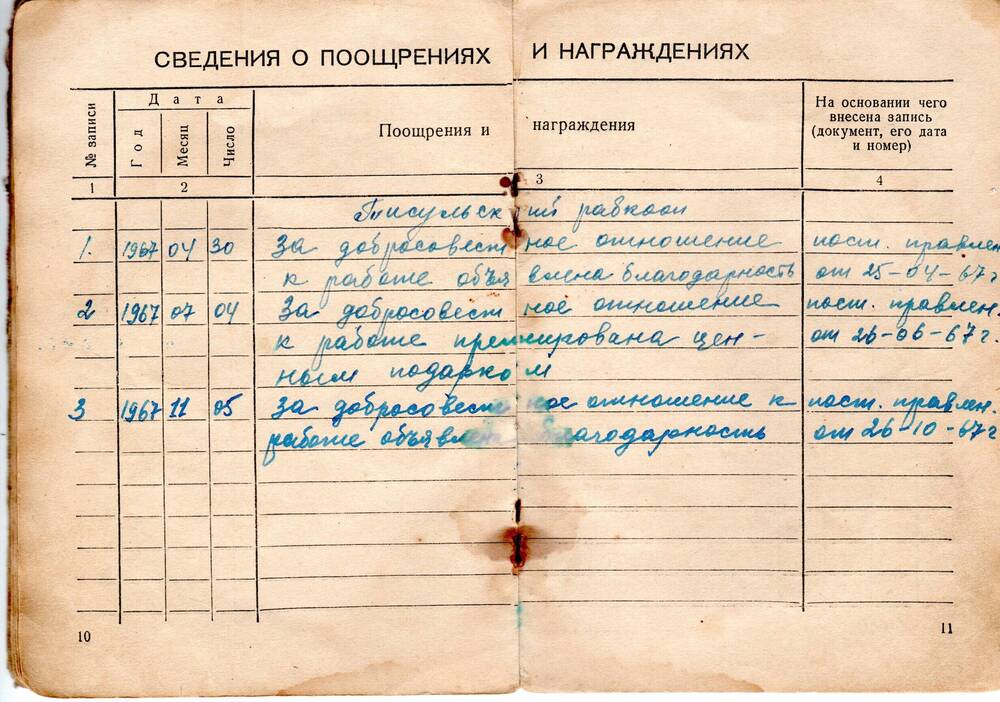 СВЕДЕНИЯ О ПООЩРЕНИЯХ И НАГРАЖДЕНИЯХ
№ записи
Дата
Год
Месяц
Число
Поощрения и награждения
На основании чего
внесена запись
(документ, его дата
и номер)
1 2 3 4
Тисульский рабкооп
1. 1967 04 30 За добросовестное отношение пост. правлен
к работе объявлена благодарность от 25-04-67г
2 1967 07 04 За добросовестное отношение пост. правлен.
к работе премирована цен- от 26-06-67г.
ным подарком
3 1967 11 05 За добросовестное отношение к пост. правлен.
работе объявлена благодарность от 26-10-67г
10
11